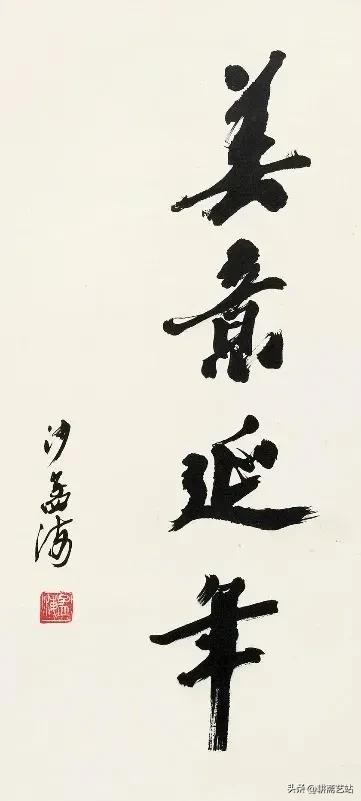 美意延年
沙孟海
头条 @耕斋艺站